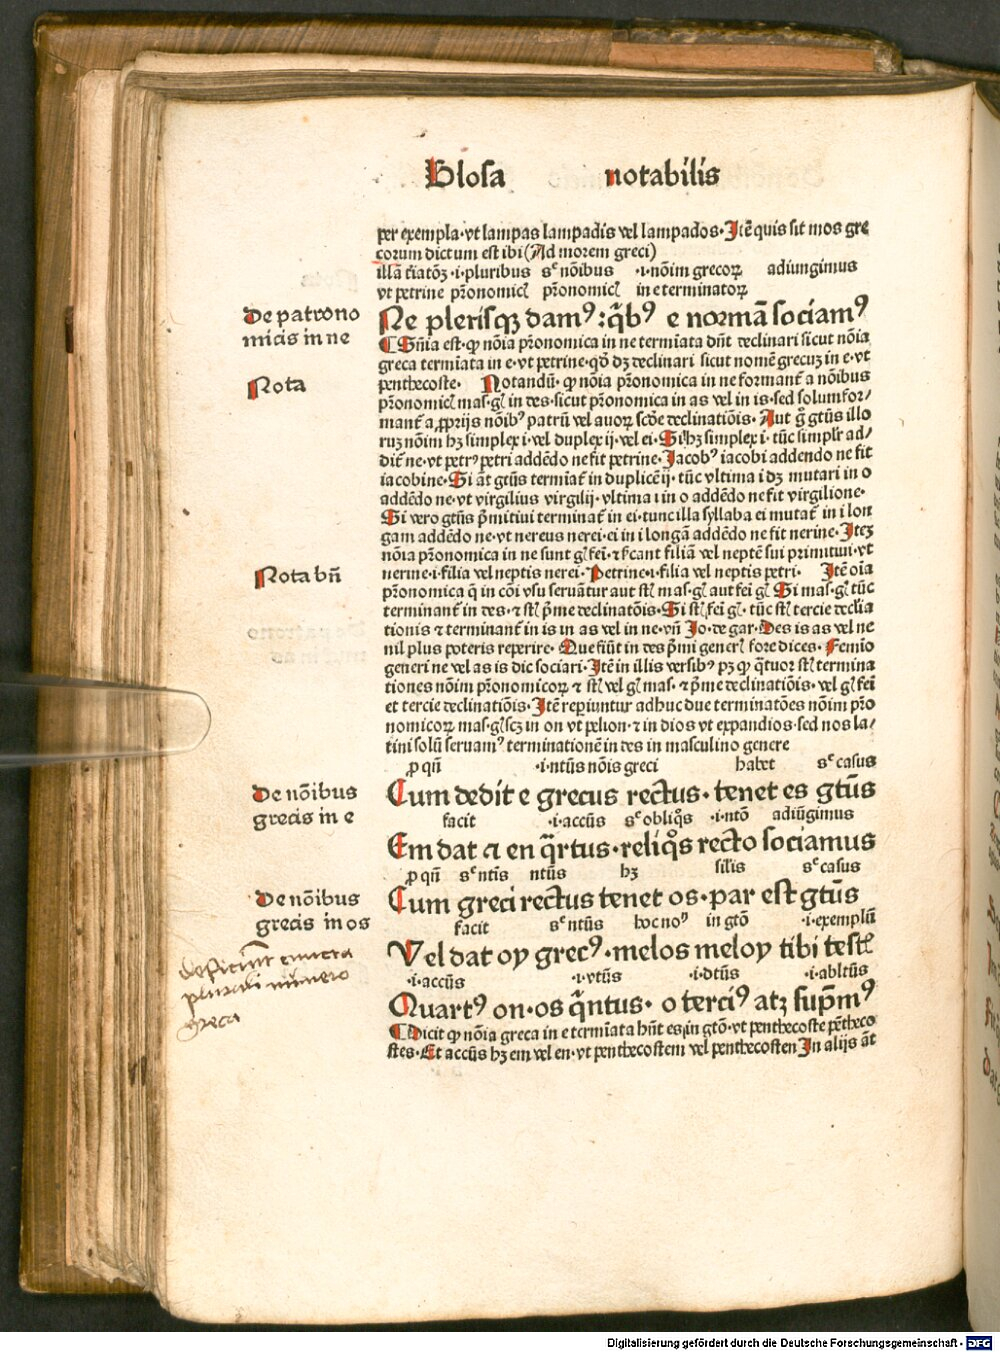 Glosa notabilis
per exempla·vt lampas lampadis vel lampados·Itē quis sit mos gre
corum dictum est ibi (Ad morem greci)
illā t̄iatōꝫ ·i·pluribus sᶜ nōibus ·i·nōim grecoꝝ adiungimus
vt petrine pr̄onomicꝭ pr̄onomicꝭ in e terminatoꝝ
De patrono
micis in ne
Ne plerisqꝫ damꝰ : q̄bꝰ e normā sociamꝰ
Sn̄ia est·ꝙ nōia pr̄onomica in ne termīata dn̄t declinari sicut nōia
greca termīata in e·vt petrine·qꝺ̄ dꝫ declinari sicut nomē grecuꝫ in e·vt
Nota
penthecoste· Notandū·ꝙ nōia pr̄onomica in ne formant̄ a nōibus
pr̄onomicꝭ mas·gꝭ in des·sicut pr̄onomica in as vel in is·sed solum for/
mant̄ a ꝓprijs nōibꝰ patrū vel auoꝝ scd̄e declinatiōis·Aut g̊ gtūs illo
ruꝫ nōim hꝫ simplex i·vel duplex ij·vel ei·Si hꝫ simplex i·tūc simpl̄r ad/
dit̄ ne·vt petrꝰ petri addēdo ne fit petrine·Jacobꝰ iacobi addendo ne fit
iacobine·Si āt gtūs termiat̄ in duplicē ij·tūc vltima i dꝫ mutari in o
addēdo ne·vt virgilius virgilij·vltima i in o addēdo ne fit virgilione·
Si vero gtūs p̄mitiui terminat̄ in ei·tunc illa syllaba ei mutat̄ in i lon
gam addēdo ne·vt nereus nerei·ei in i longā addēdo ne fit nerine·Iteꝫ
nōia pr̄onomica in ne sunt gꝭ fei·⁊ sc̄ant filiā vel neptē sui primitiui·vt
Nota bn̄
nerine·i·filia vel neptis nerei·Petrine·i·filia vel neptis petri· Itē oīa
pr̄onomica q̄ in cōi vsu seruātur aut st̄ mas·gꝭ aut fei gꝭ Si mas·gꝭ tūc
terminant̄ in des·⁊ st̄ p̄me declinatōis·Si st̄ fei gꝭ·tūc st̄ tercie declīa
tionis ⁊ terminant̄ in is in as vel in ne·vn̄ Jo·de gar·Des is as vel ne
nil plus poteris reperire·Que fiūt in des p̄mi generꝭ fore dices·Femīo
generi ne vel as is dic sociari·Itē in illis versibꝰ pꝫ ꝙ q̄tuor st̄ termina
tiones nōim pr̄onomicoꝝ ⁊ st̄ vel gꝭ mas·⁊ p̄me declinatiōis·vel gꝭ fei
et tercie declinatiōis·Itē rep̄iuntur adhuc due terminatōes nōim pr̄o
nomicoꝝ mas·gꝭ scꝫ in on vt pelion·⁊ in dios vt expandios·sed nos la/
tini solū seruamꝰ terminationē in des in masculino genere
ꝓ qn̄ ·i·ntūs nōis greci habet sᶜ casus
De nōibus
grecis in e
Cum dedit e grecus rectus·tenet es gtūs
facit ·i·accūs sᶜ obliq̊s ·i·ntō adiūgimus
Em dat ⁊ en q̄rtus·reliq̊s recto sociamus
ꝓ qn̄ sᶜ ntīs ntūs hꝫ silis sᶜ casus
De nōibus
grecis in os
Cum greci rectus tenet os·par est gtūs
facit sᶜ ntūs hoc noꝰ in gtō ·i·exemplū
Vel dat oy grecꝰ·melos meloy tibi testꝭ
deficiunt
plurali numero
greca
·i·accūs ·i·vtūs ·i·dtūs ·i·abltūs
Quartꝰ on·os q̄ntus· o terciꝰ atꝫ sup̄mꝰ
Dicit ꝙ nōia greca in e termīata hn̄t es in gtō·vt penthecoste pēthecos
stes·Et accūs hꝫ em vel en·vt penthecostem vel penthecosten In alijs āt
Digitalisierung gefördert durch die Deutsche Forschungsgemeinschaft - DFG